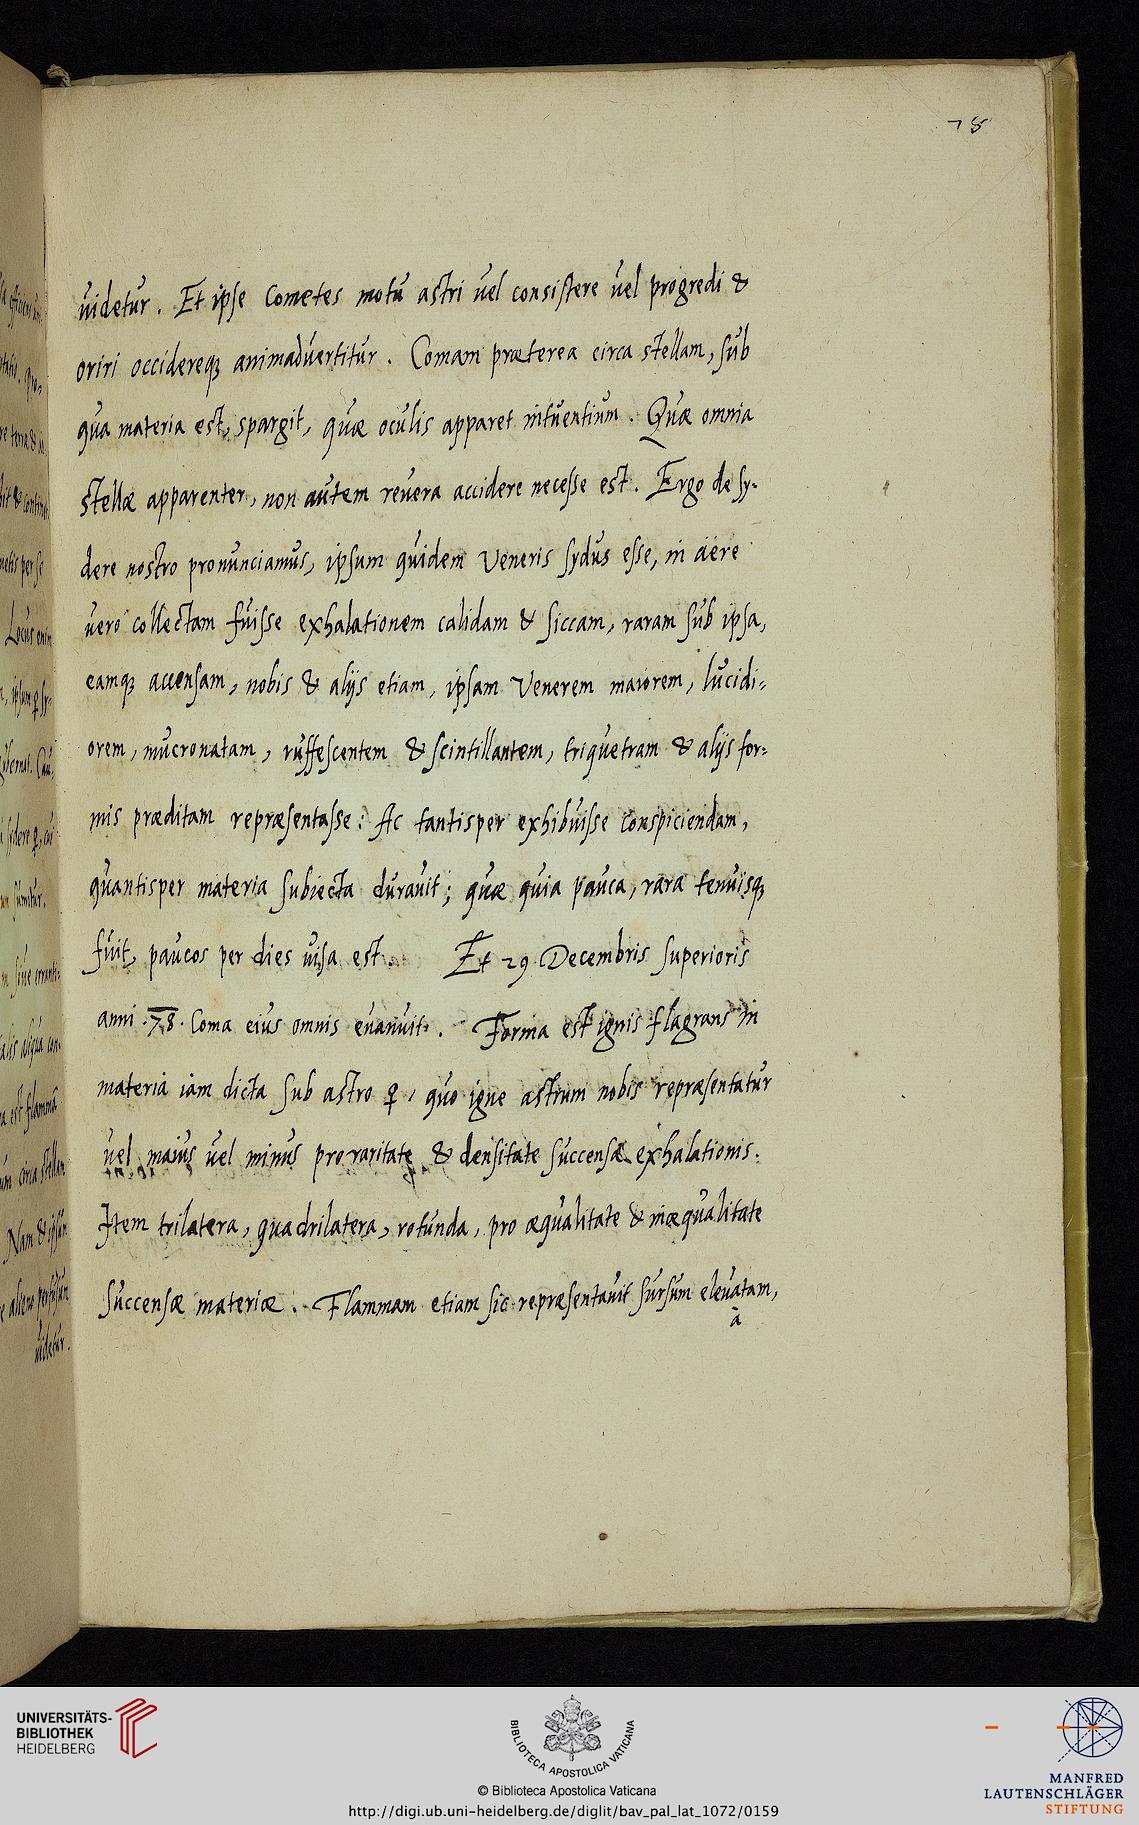 78
videtur. Et ipse Cometes motu astri vel consistere vel progredi &
oriri occidereq3 animadvertitur. Comam præterea circa stellam, sub
qua materia est, spargit, quæ oculis apparet intuentium. Quæ omnia
stellæ apparenter, non autem revera accidere necesse est. Ergo de sy-
dere nostro pronunciamus, ipsum quidem Veneris sydus esse, in aëre
verò collectam fuisse exhalationem calidam & siccam, raram sub ipsa,
eamq3 accensam, nobis & alijs etiam, ipsam Venerem maiorem, lucidi=
orem, mucronatam, ruffescentem & scintillantem, triquetram & alijs for=
mis præditam repræsentasse: Ac tantisper exhibuisse conspiciendam,
quantisper materia subiecta duravit; quæ quia pauca, rara tenuisq3
fuit, paucos per dies visa est. Et 29 Decembris superioris
anni .78. Coma eius omnis evanuit. Forma est ignis flagrans in
materia iam dicta sub astro ♀, quo igne astrum nobis repræsentatur
vel maius vel minus pro raritate & densitate succensæ exhalationis.
Item trilatera, quadrilatera, rotunda, pro æqualitate & inæqualitate
succensæ materiæ. Flammam etiam sic repræsentavit sursum elevatam,
à
videtur.
UNIVERSITÄTS-
BIBLIOTHEK
HEIDELBERG
BIBLIOTECA APOSTOLICA VATICANA
© Biblioteca Apostolica Vaticana
http://digi.ub.uni-heidelberg.de/diglit/bav_pal_lat_1072/0159
MANFRED
LAUTENSCHLÄGER
STIFTUNG